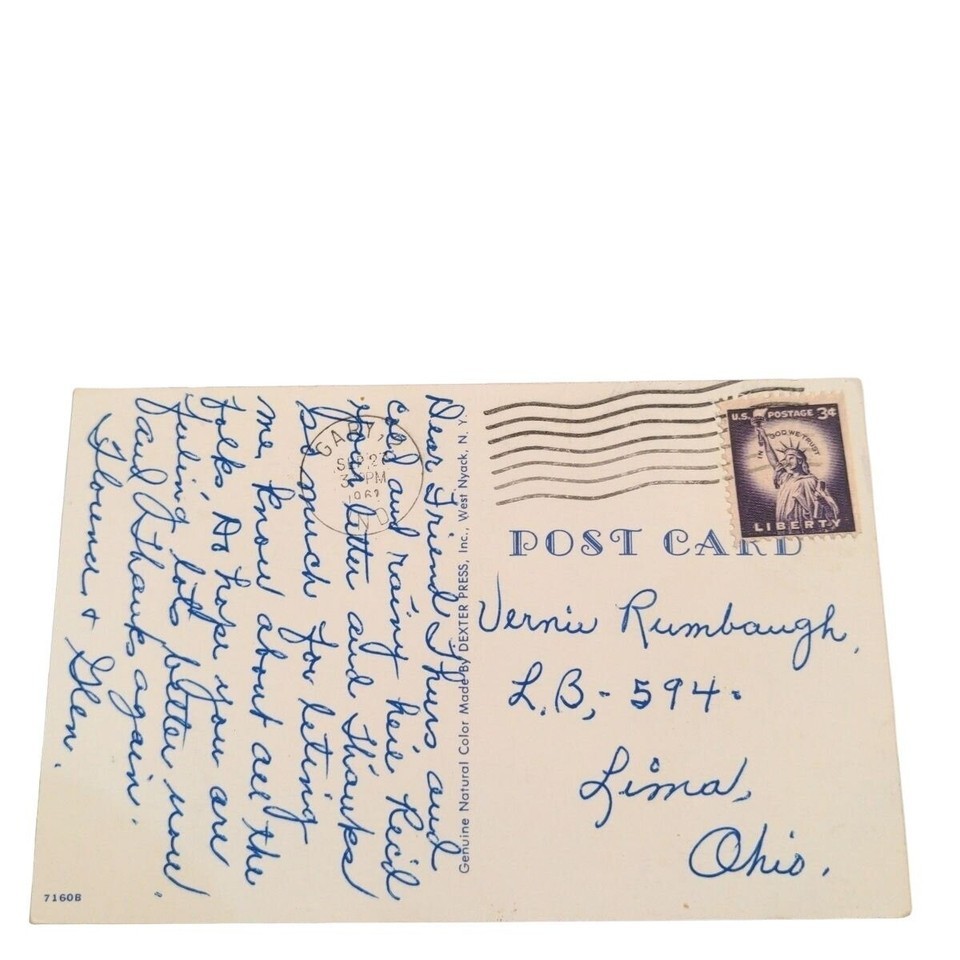 Dear Friend Thurs and
cold and rainy here Rec'd
your letter and Thanks
so much for leting
me know about all the
folks, do hope you are
feeling lots better now.
Paul & Thanks again.
Florence & Glen.
GARY,
SEP 27
3 PM
196
IND
Genuine Natural Color Made By DEXTER PRESS, Inc., West Nyack, N. Y.
7160B
U.S. POSTAGE 3¢
IN GOD WE TRUST
LIBERTY
POST CARD
Vernie Rumbaugh,
L.B,- 594.
Lima,
Ohio.